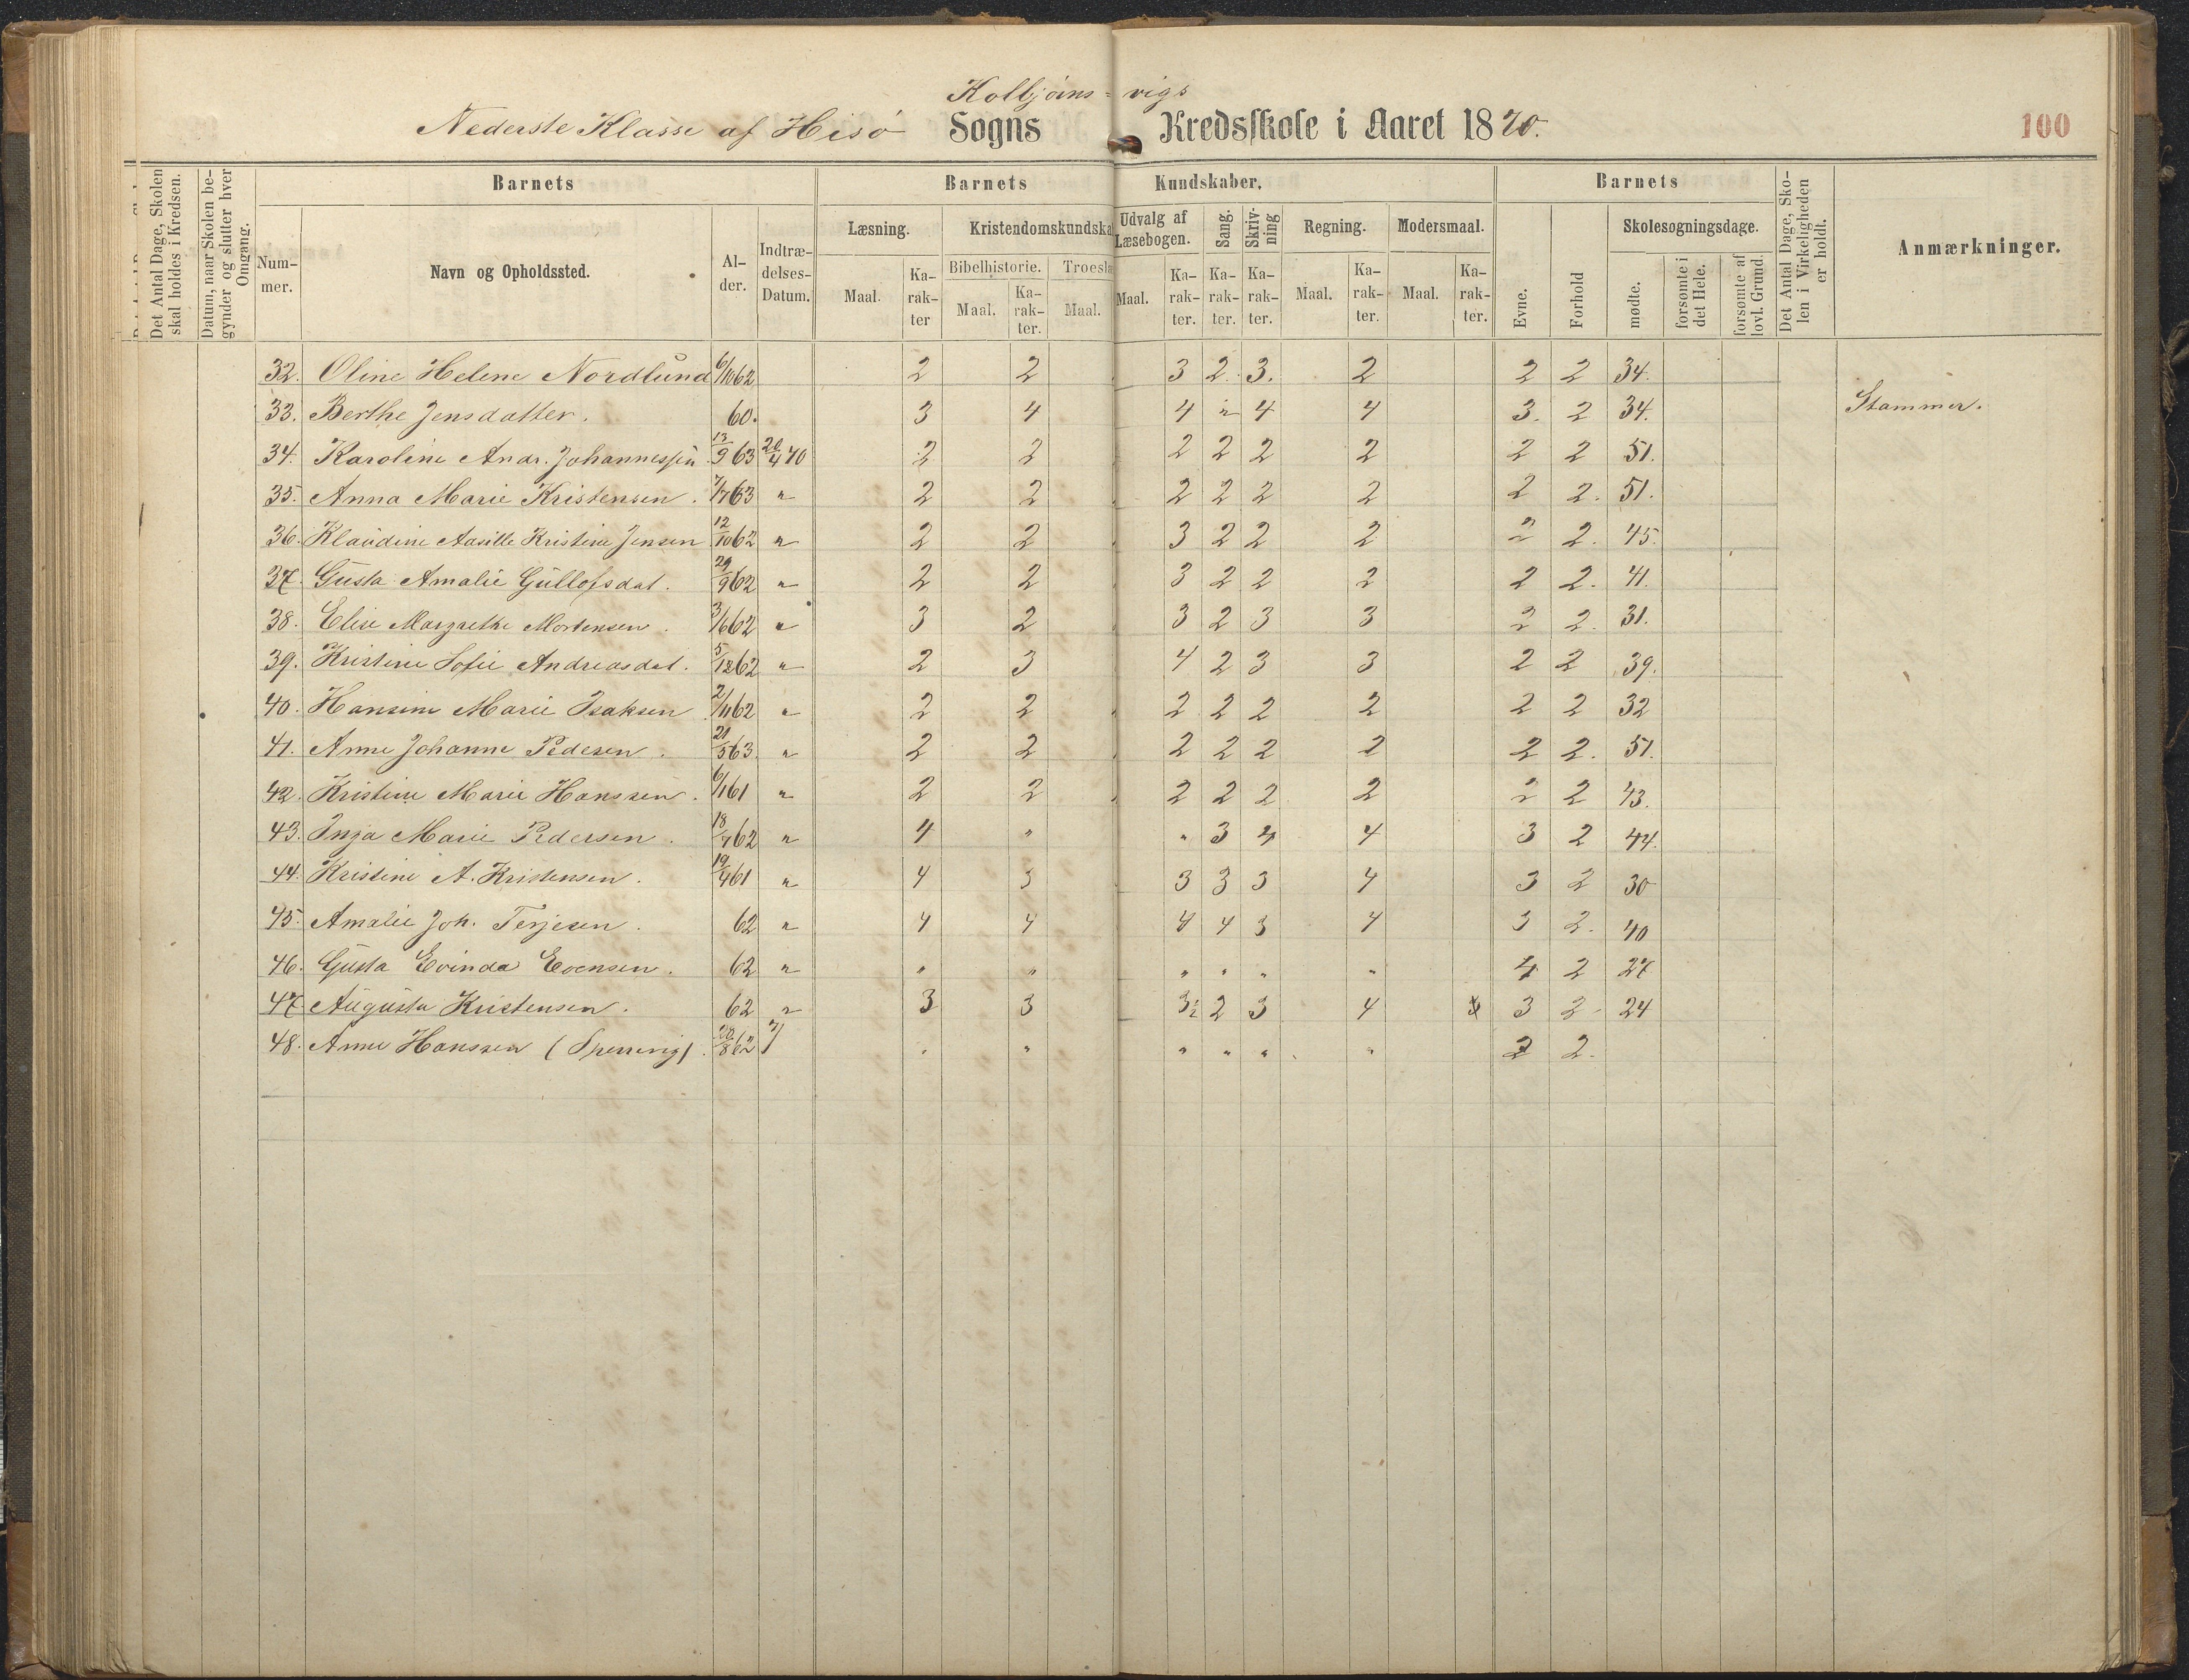 Kolbjørns = vigs
Nederste Klasse af Hisø Sogns Kredsskole i Aaret 1870.
100
Det Antal Dage, Skolen skal holdes i Kredsen.
Datum, naar Skolen begynder og slutter hver Omgang.
Barnets
Barnets Kundskaber.
Barnets
Det Antal Dage, Skolen i Virkeligheden er holdt.
Anmærkninger.
Nummer.
Navn og Opholdssted.
Alder.
Indtrædelses-Datum.
Læsning.
Kristendomskundska
Udvalg af Læsebogen.
Sang.
Skrivning
Regning.
Modersmaal.
Evne.
Forhold
Skolesøgningsdage.
Bibelhistorie.
Troesla
Maal. Karakter Maal. Karakter. Maal. Maal. Karakter. Karakter. Karakter. Maal. Karakter. Maal. Karakter.
mødte.
forsømte i det Hele.
forsømte af lovl. Grund.
32. Oline Helene Nordlund 6/10 62 2 2 3 2. 3. 2 2 2 34.
33. Berthe Jensdatter. 60. 3 4 4 " 4 4 3. 2 34. Stammer.
34. Karoline Andr. Johannessen 13/9 63 20/4 70 2 2 2 2 2 2 2 2 51.
35. Anna Marie Kristensen. 7/7 63 " 2 2 2 2 2 2 2 2. 51.
36. Klaudine Aasille Kristine Jensen 12/10 62 " 2 2 3 2 2 2 2 2. 45.
37. Gusta Amalie Gullofsdat. 29/9 62 " 2 2 3 2 2 2 2 2. 41.
38. Elise Margrethe Mortensen. 3/6 62 " 3 2 3 2 3 3 2 2. 31.
39. Kristine Sofie Andreasdat. 5/12 62 " 2 3 4 2 3 3 2 2 39.
40. Hansine Marie Isaksen 2/11 62 " 2 2 2 2 2 2 2 2 32
41. Anne Johanne Pedesen. 21/5 63. " 2 2 2 2 2 2 2 2. 51.
42. Kristine Marie Hanssen. 6/1 61 " 2 2 2 2 2 2 2 2 43.
43. Inga Marie Pedersen. 18/7 62 " 4 " " 3 4 4 3 2 44.
44. Kristine A. Kristensen. 19/4 61 " 4 3 3 3 3 4 3 2 30
45. Amalie Joh. Terjesen. 62 " 4 4 4 4 3 4 3 2. 40
46. Gusta Evinda Evensen. 62 " " " " " " " 4 2 27
47. Augusta Kristensen. 62 " 3 3 3½ 2 3 4 3 2 24
48. Anne Hanssen 62 " " " " " " 2 2.